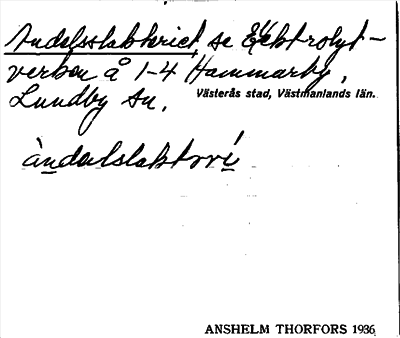 Andelsslakteriet, se Elektrolyt-
verken å 1-4 Hammarby,
Lundby sn. Västerås stad, Västmanlands län.
àndalslaktorí
ANSHELM THORFORS 1936